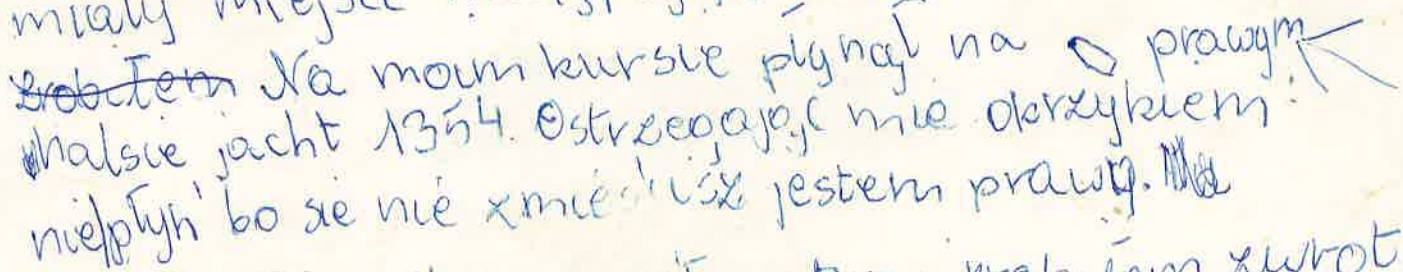 miały miejsce
zrobiłem Na moim kursie płynął na prawym
halsie jacht 1354. Ostrzegając mie okrzykiem:
nie płyń bo sie nie zmieścisz jestem prawy. Na
zwrot